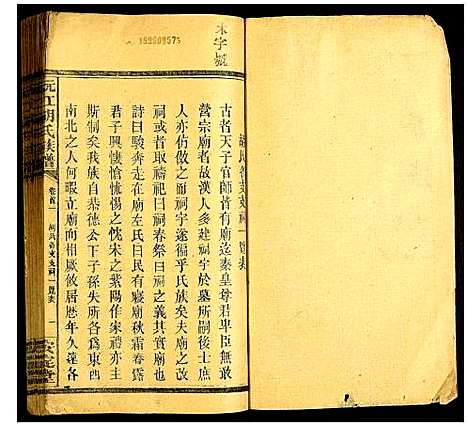 木字號
A 199509575
胡氏各支支祠一覽表
古者天子官師皆有廟迄秦皇尊君卑臣無敢
營宗廟者故漢人多建祠宇於墓所嗣後士庶
人亦仿傚之而祠宇遂徧乎氏族矣夫廟之改
祠或者取禱祀曰祠春祭曰祠之義其實廟也
詩曰駿奔走在廟左氏曰民有寢廟秋霜春露
君子興悽愴惕之忱宋之紫陽作家禮亦主
斯制矣我族自恭德公下子孫失所各為東西
南北之人何暇立廟向相厥攸居歷年久遠各
沅江胡氏族譜
卷首一
祠各支支祠一覽表
一
安定堂